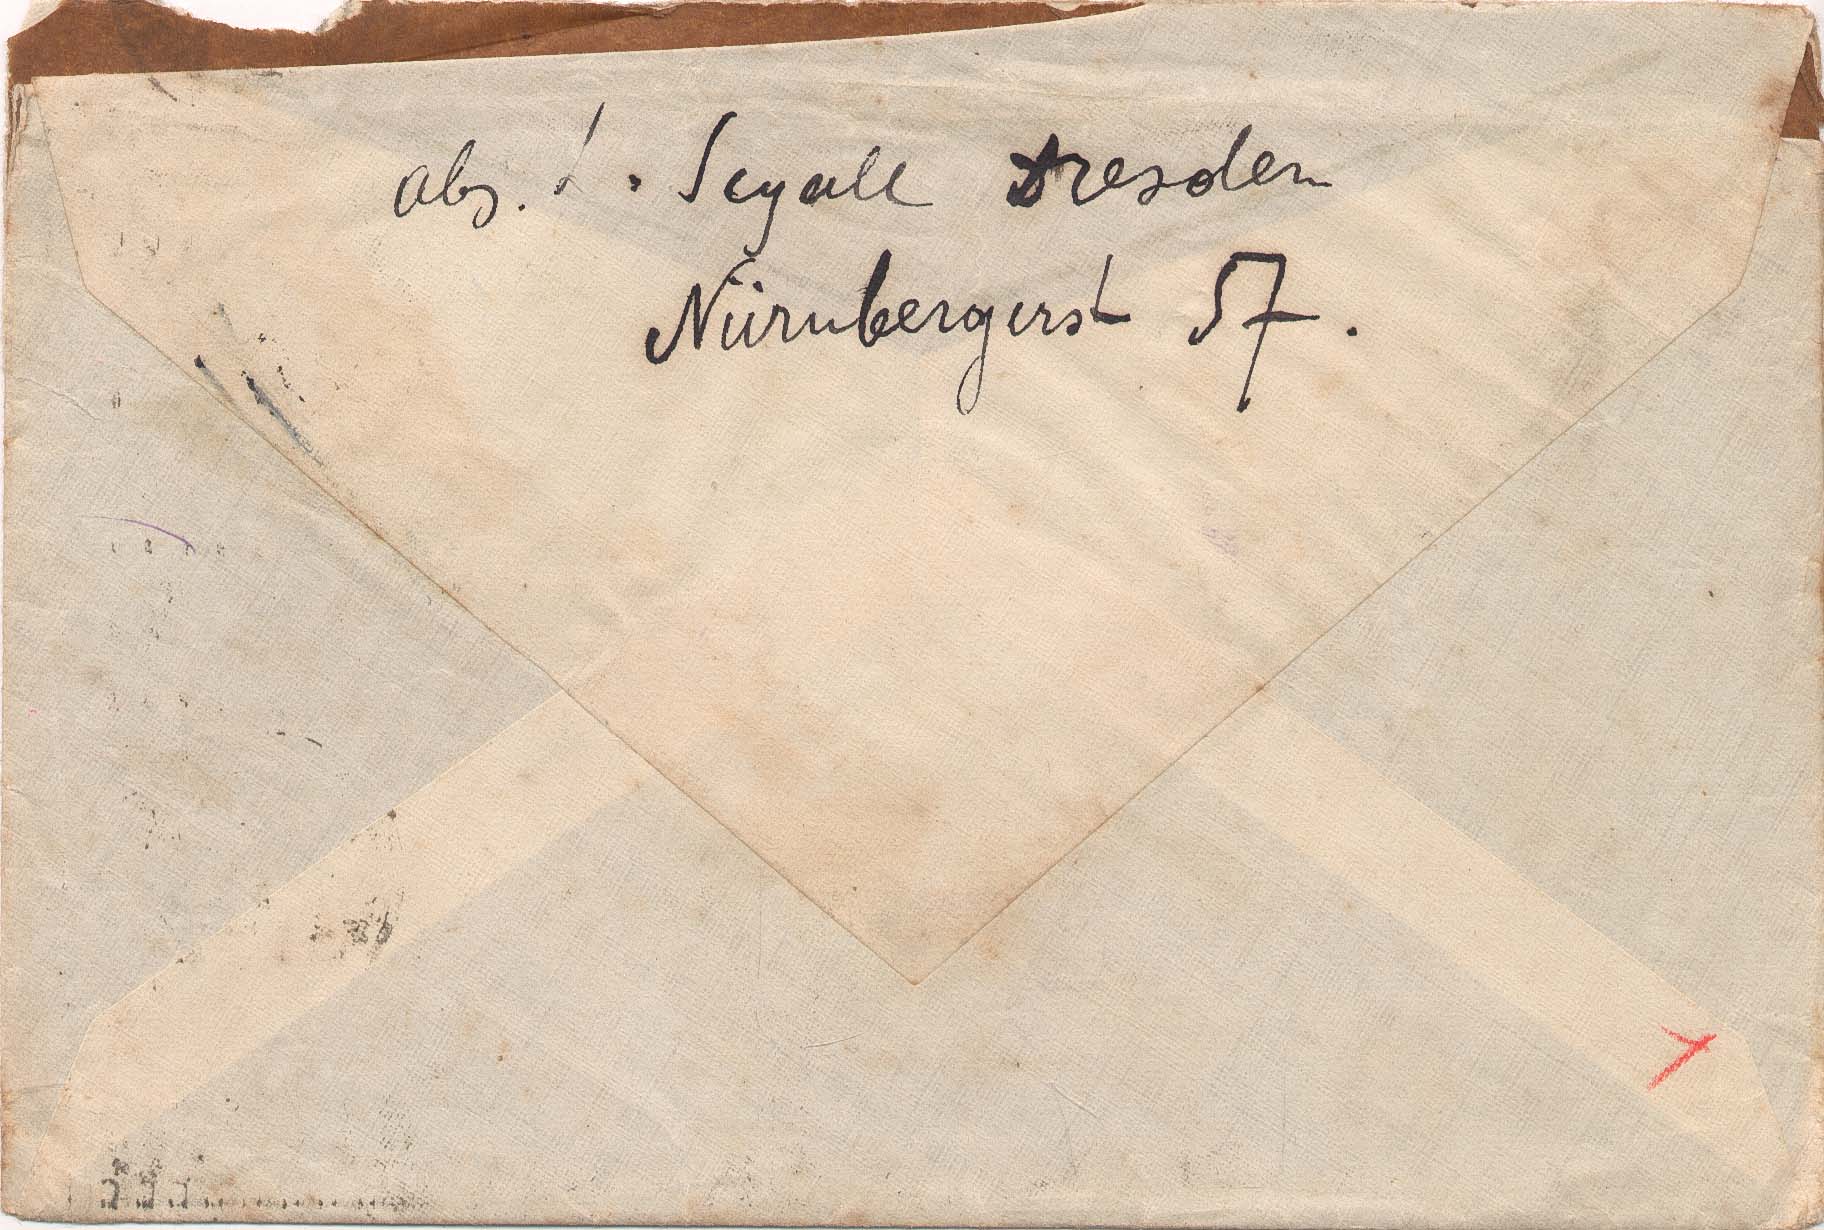 Abs. L. Segall Dresden
Nürnbergerst 57.